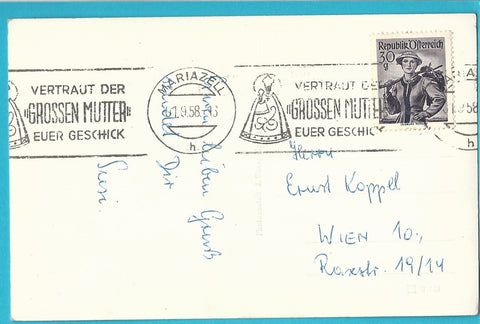 VERTRAUT DER
„GROSSEN MUTTER“
EUER GESCHICK
MARIAZELL
1.9.58
h
VERTRAUT DE
„GROSSEN MUTTER
EUER GESCHICK
Republik Österreich
30
g
AZ
9 58
h
lieben Gruß
Dir
Susi.
Herrn
Ernst Koppell
WIEN 10.,
Raxstr. 19/14